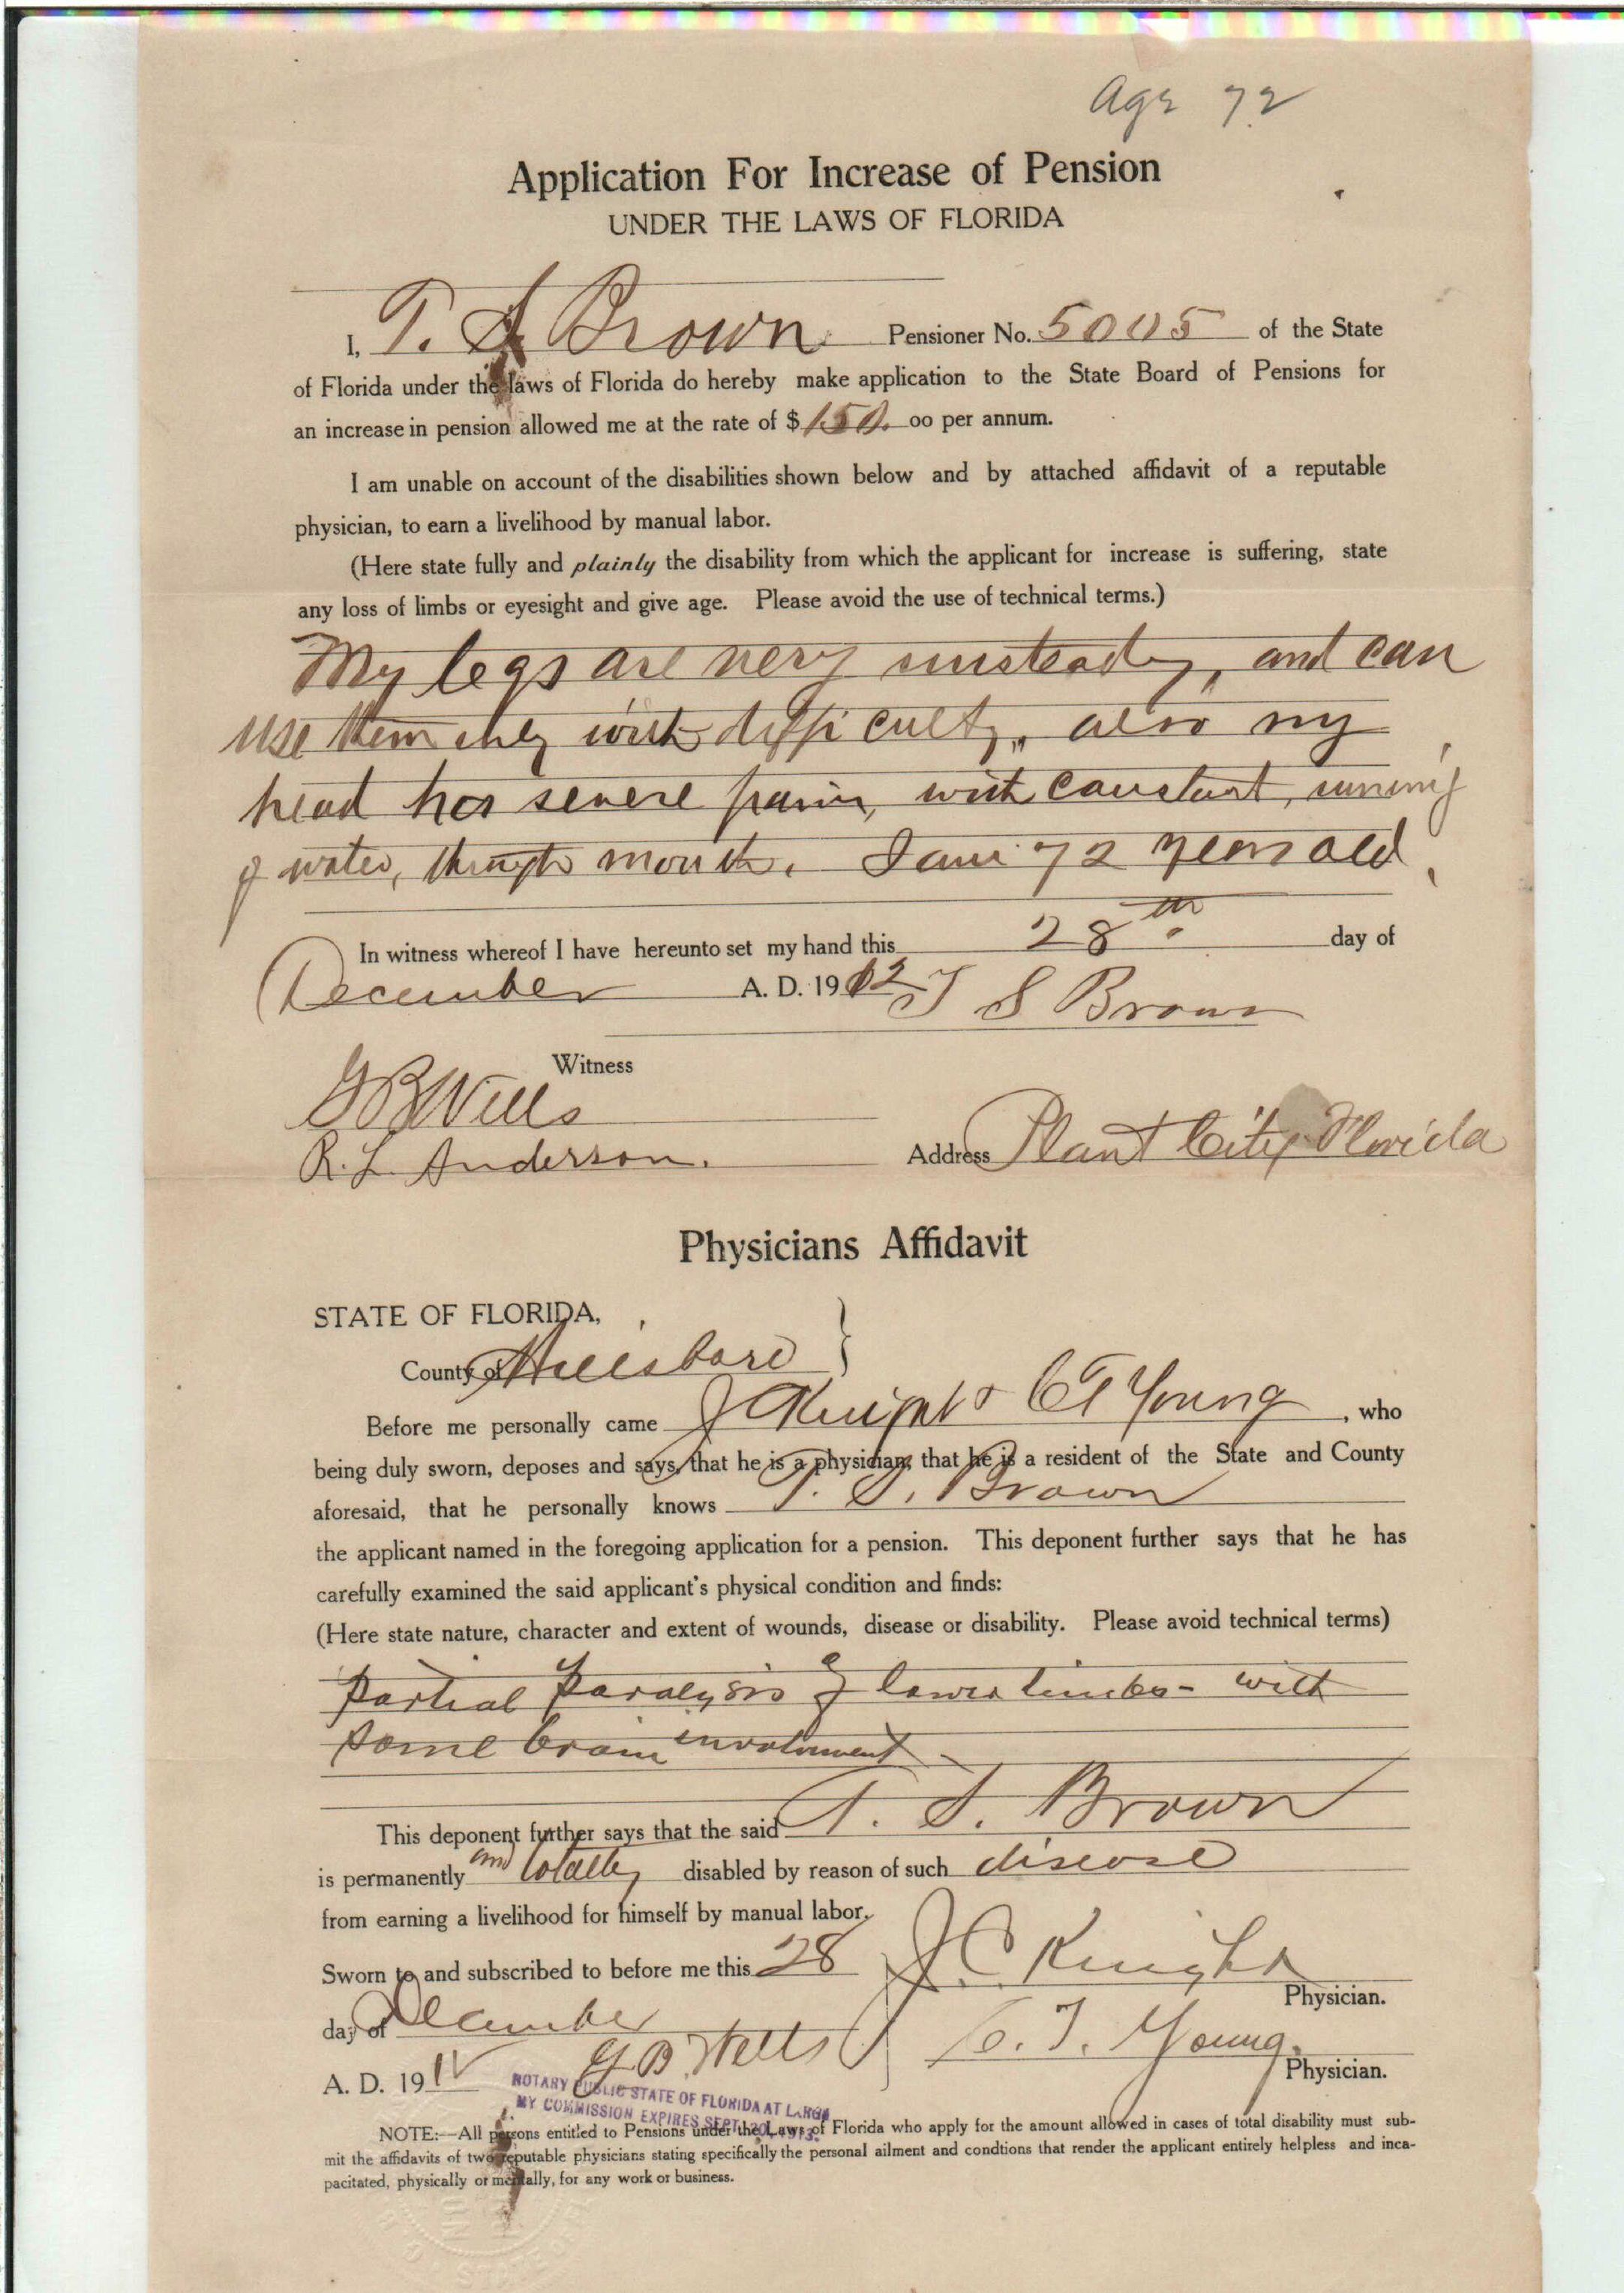 Age 72
Application For Increase of Pension
UNDER THE LAWS OF FLORIDA
I, T. S Brown Pensioner No. 5005 of the State
of Florida under the laws of Florida do hereby make application to the State Board of Pensions for
an increase in pension allowed me at the rate of $ 150. oo per annum.
I am unable on account of the disabilities shown below and by attached affidavit of a reputable
physician, to earn a livelihood by manual labor.
(Here state fully and plainly the disability from which the applicant for increase is suffering, state
any loss of limbs or eyesight and give age. Please avoid the use of technical terms.)
My legs are very unsteady, and can
use them only with difficulty, also my
head has severe pain, with constant, running
of water, through mouth. I am 72 years old.
In witness whereof I have hereunto set my hand this 28th day of
December A. D. 1912 T S Brown
Witness
G B Wells
R. L. Anderson.
Address Plant City Florida
Physicians Affidavit
STATE OF FLORIDA,
County of Hillsboro }
Before me personally came J C Knight & C T Young, who
being duly sworn, deposes and says, that he is a physician; that he is a resident of the State and County
aforesaid, that he personally knows T. S. Brown
the applicant named in the foregoing application for a pension. This deponent further says that he has
carefully examined the said applicant's physical condition and finds:
(Here state nature, character and extent of wounds, disease or disability. Please avoid technical terms)
Partial Paralysis of lower limbs - with
some brain involvment -
This deponent further says that the said T. S. Brown
is permanently and totally disabled by reason of such disease
from earning a livelihood for himself by manual labor.
Sworn to and subscribed to before me this 28 J C Knight
Physician.
day of December
G B Wells C. T. Young.
Physician.
A. D. 1912
NOTARY PUBLIC STATE OF FLORIDA AT LARGE
MY COMMISSION EXPIRES SEPT. 20, 1913.
NOTE:—All persons entitled to Pensions under the Laws of Florida who apply for the amount allowed in cases of total disability must sub-
mit the affidavits of two reputable physicians stating specifically the personal ailment and condtions that render the applicant entirely helpless and inca-
pacitated, physically or mentally, for any work or business.